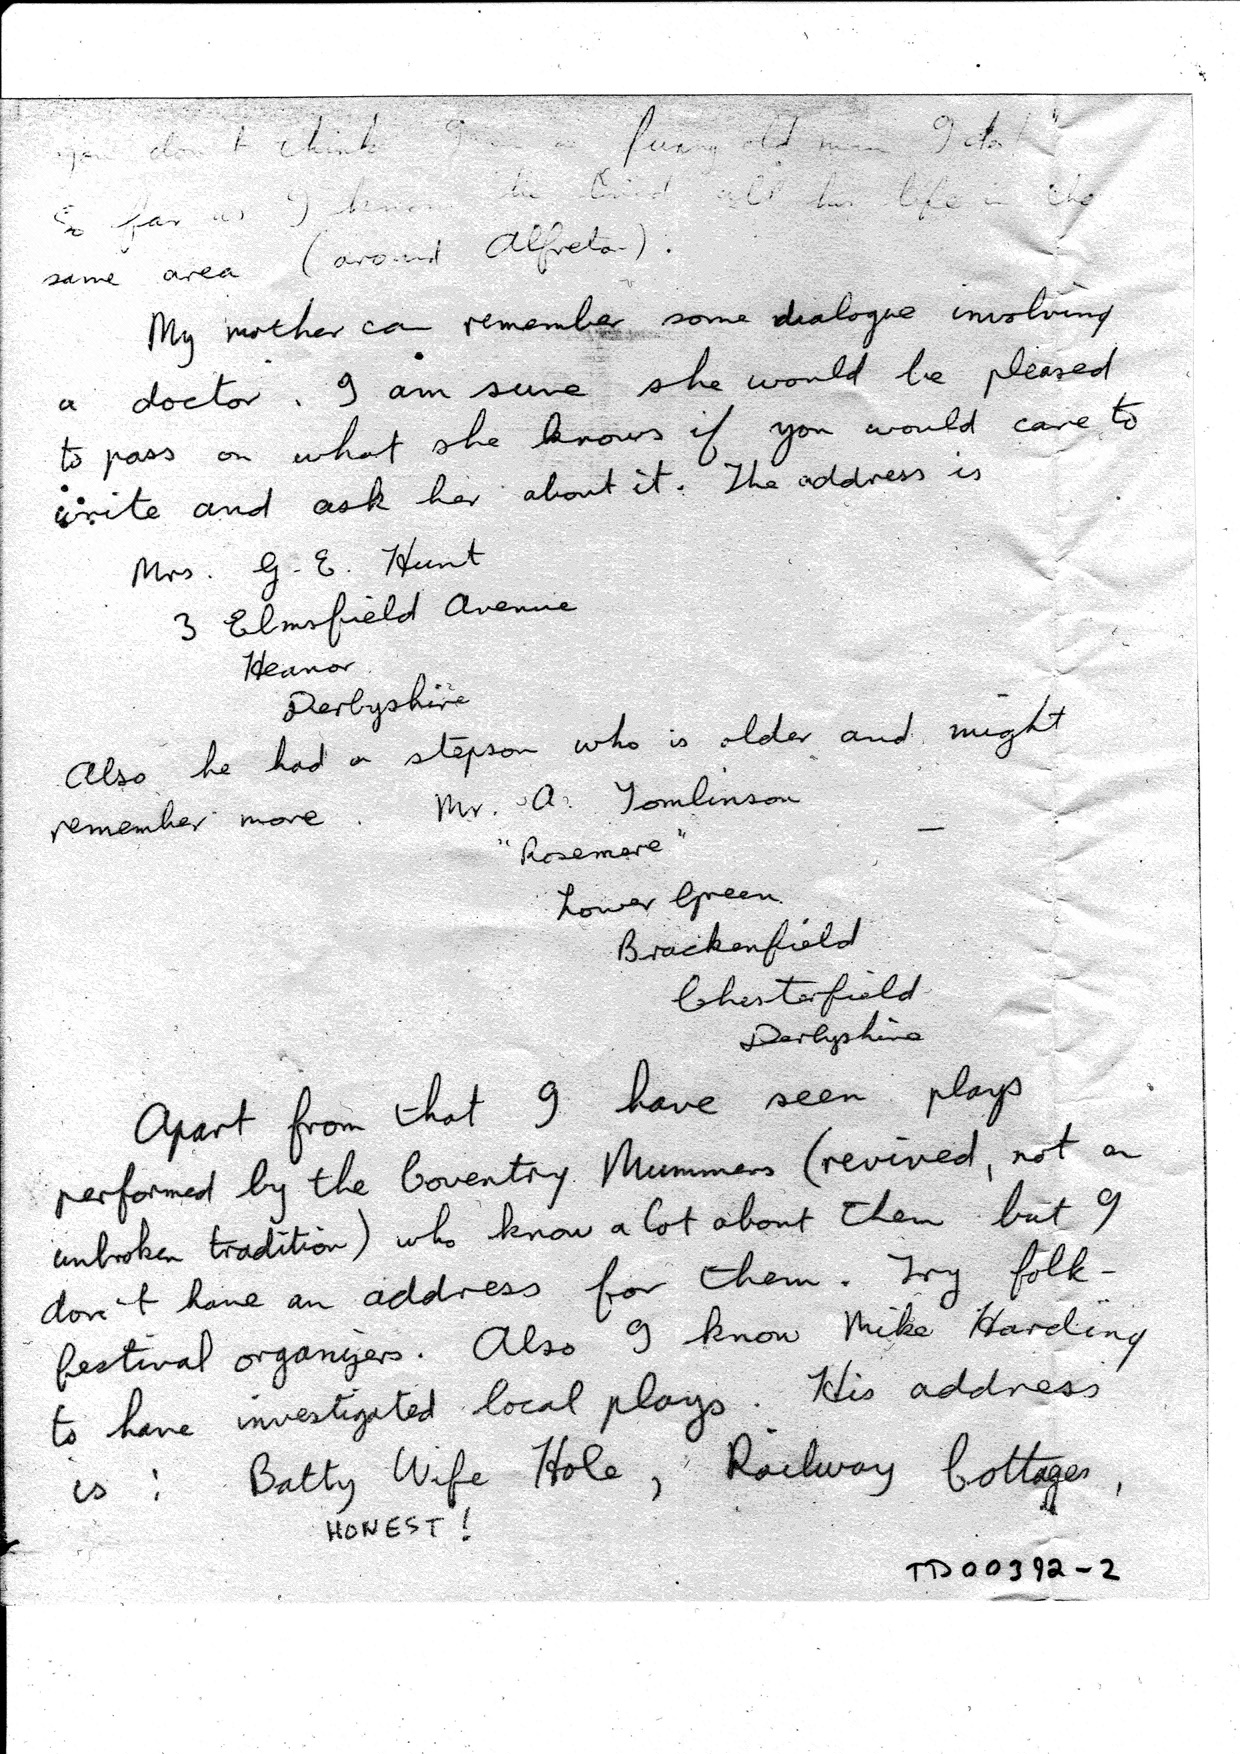 you don't think I am a funny old man I do!"
So far as I know he lived all his life in the
same area (around Alfreton).
My mother can remember some dialogue involving
a doctor. I am sure she would be pleased
to pass on what she knows if you would care to
write and ask her about it. The address is
Mrs. G. E. Hunt
3 Elmsfield Avenue
Heanor
Derbyshire
Also he had a stepson who is older and might
remember more. Mr. A. Tomlinson
"Rosemere"
Lower Green
Brackenfield
Chesterfield
Derbyshire
Apart from that I have seen plays
performed by the Coventry Mummers (revived, not an
unbroken tradition) who know a lot about them but I
don't have an address for them. Try folk-
festival organizers. Also I know Mike Harding
to have investigated local plays. His address
is : Batty Wife Hole, Railway Cottages,
HONEST!
TD00392-2